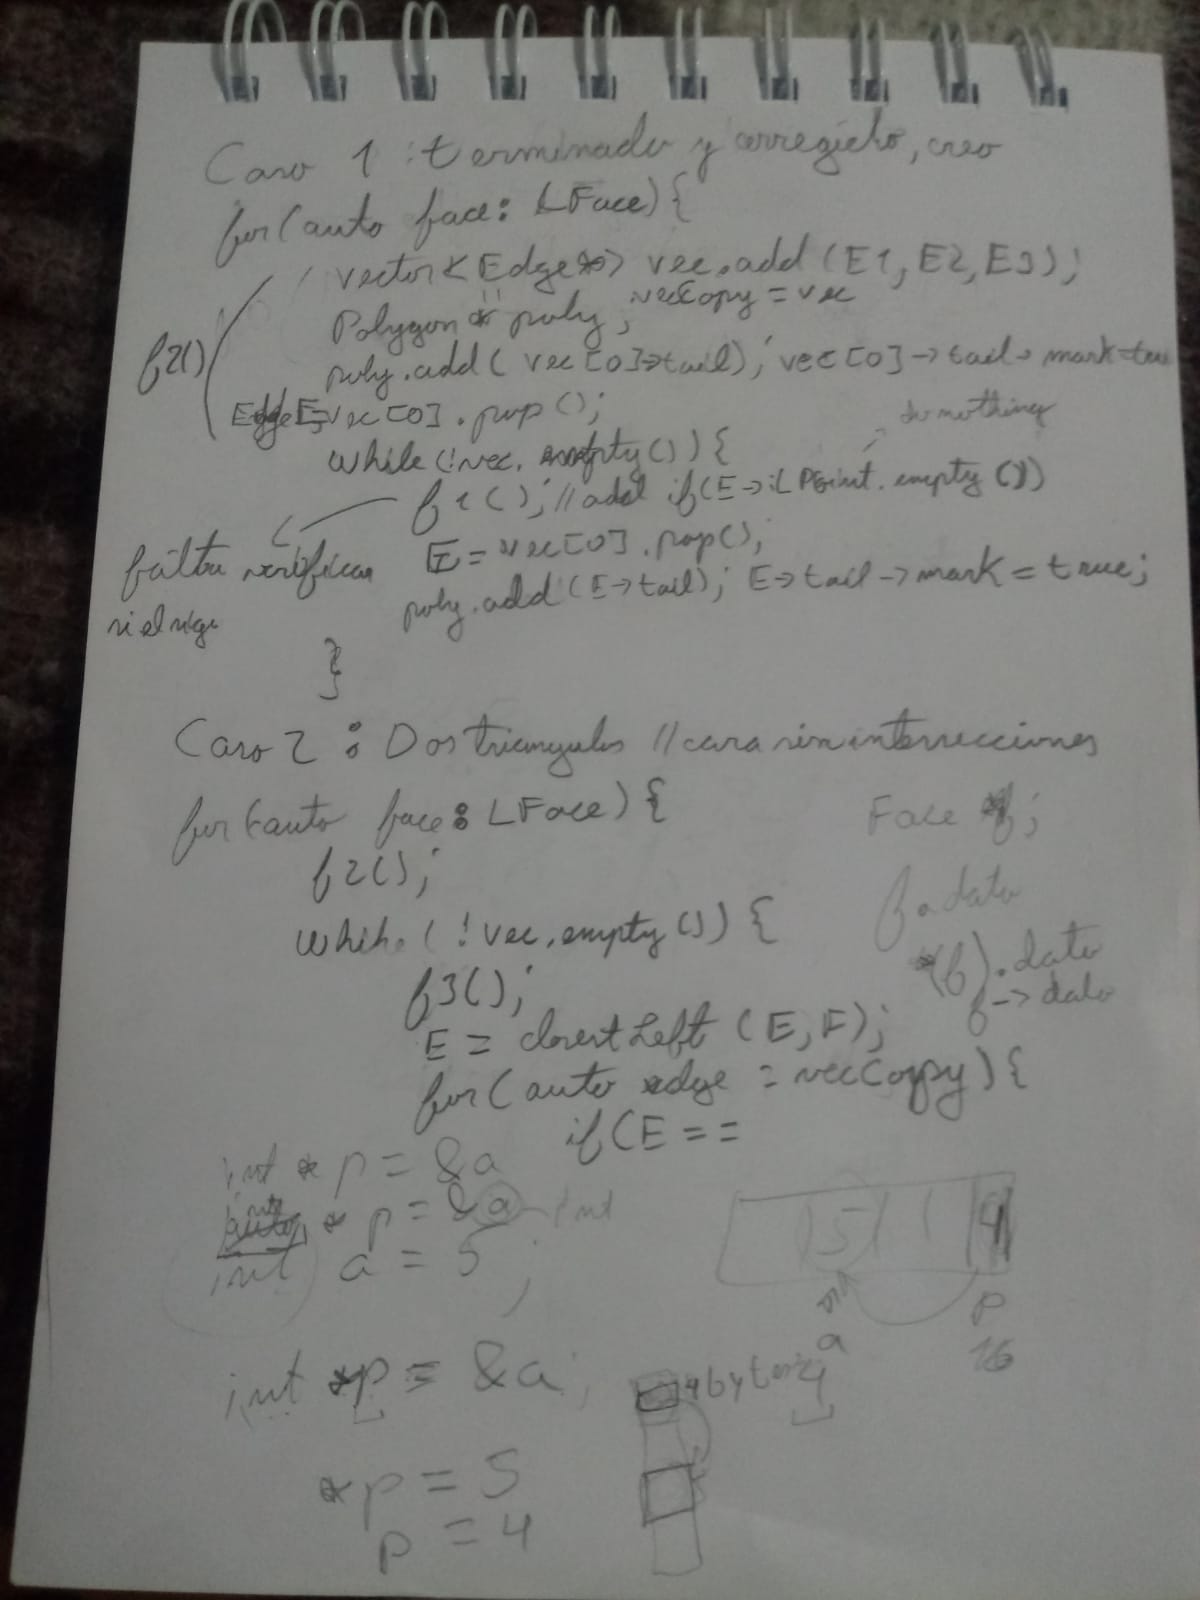 Caso 1 : terminado y corregido, creo
for(auto face: LFace){
vector<Edge*> vec.add(E1, E2, E3);
Polygon * poly; vecCopy = vec
f2()
poly.add(vec[0]->tail); vec[0]->tail->mark=true
E=vec[0].pop();
do nothing
while(!vec.empty()){
f1(); //add if(E->iLPoint.empty())
falta verificar
E = vec[0].pop();
poly.add(E->tail); E->tail->mark = true;
}
Caso 2 : Dos triangulos // cara sin intersecciones
for(auto face: LFace){
Face *f;
f2();
f.dato
while(!vec.empty()){
*(f).dato
f3();
f->dato
E = closestLeft(E,F);
for(auto edge : vecCopy){
if(E ==
int *p = &a
int * p = &a int
int a = 5;
5 4
a p
16
int *p = &a;
4bytes
*p = 5
p = 4